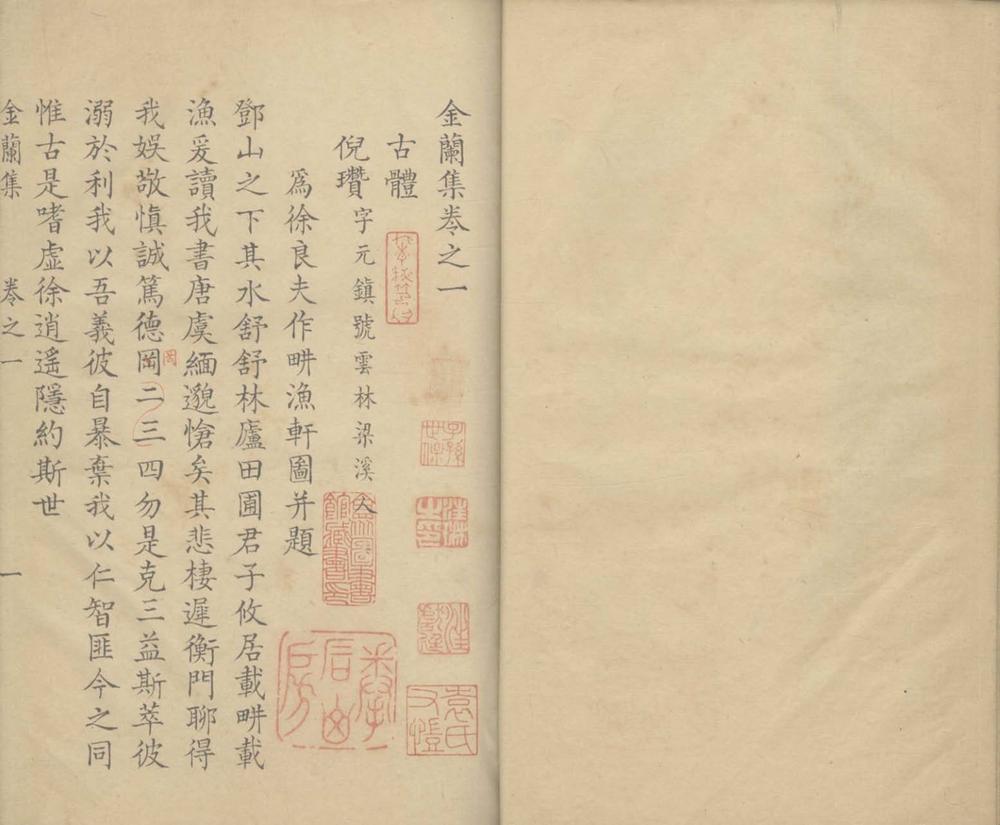 金蘭集卷之一
古體
倪瓚字元鎮號雲林梁溪人
爲徐良夫作畊漁軒圖并題
鄧山之下其水舒舒林廬田圃君子攸居載畊載
漁爰讀我書唐虞緬邈愴矣其悲棲遲衡門聊得
我娛敬愼誠篤德岡二三四勿是克三益斯萃彼
罔
溺於利我以吾義彼自暴棄我以仁智匪今之同
惟古是嗜虛徐逍遙隱約斯世
金蘭集 卷之一 一
子孫世保
袁氏又愷